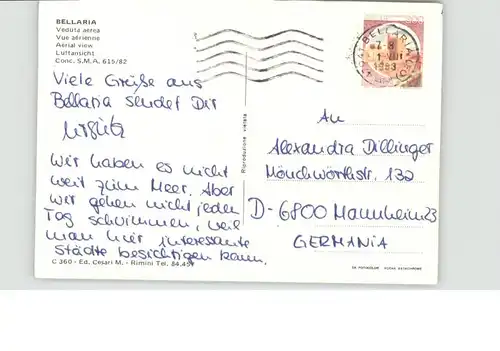 BELLARIA
Veduta aerea
Vue aérienne
Aerial view
Luftansicht
Conc. S.M.A. 615/82
Viele Grüße aus
Bellaria sendet Dir
Wir haben es nicht
weit zum Meer. Aber
wir gehen nicht jeden
Tag schwimmen, weil
man hier interessante
Städte besichtigen kann.
C 360 - Ed. Cesari M. - Rimini Tel. 84.45
Riproduzione vietata
BELLARIA
1983
An
Alexandra Dillinger
Mönchwörthstr. 132
D-6800 Mannheim 23
GERMANIA